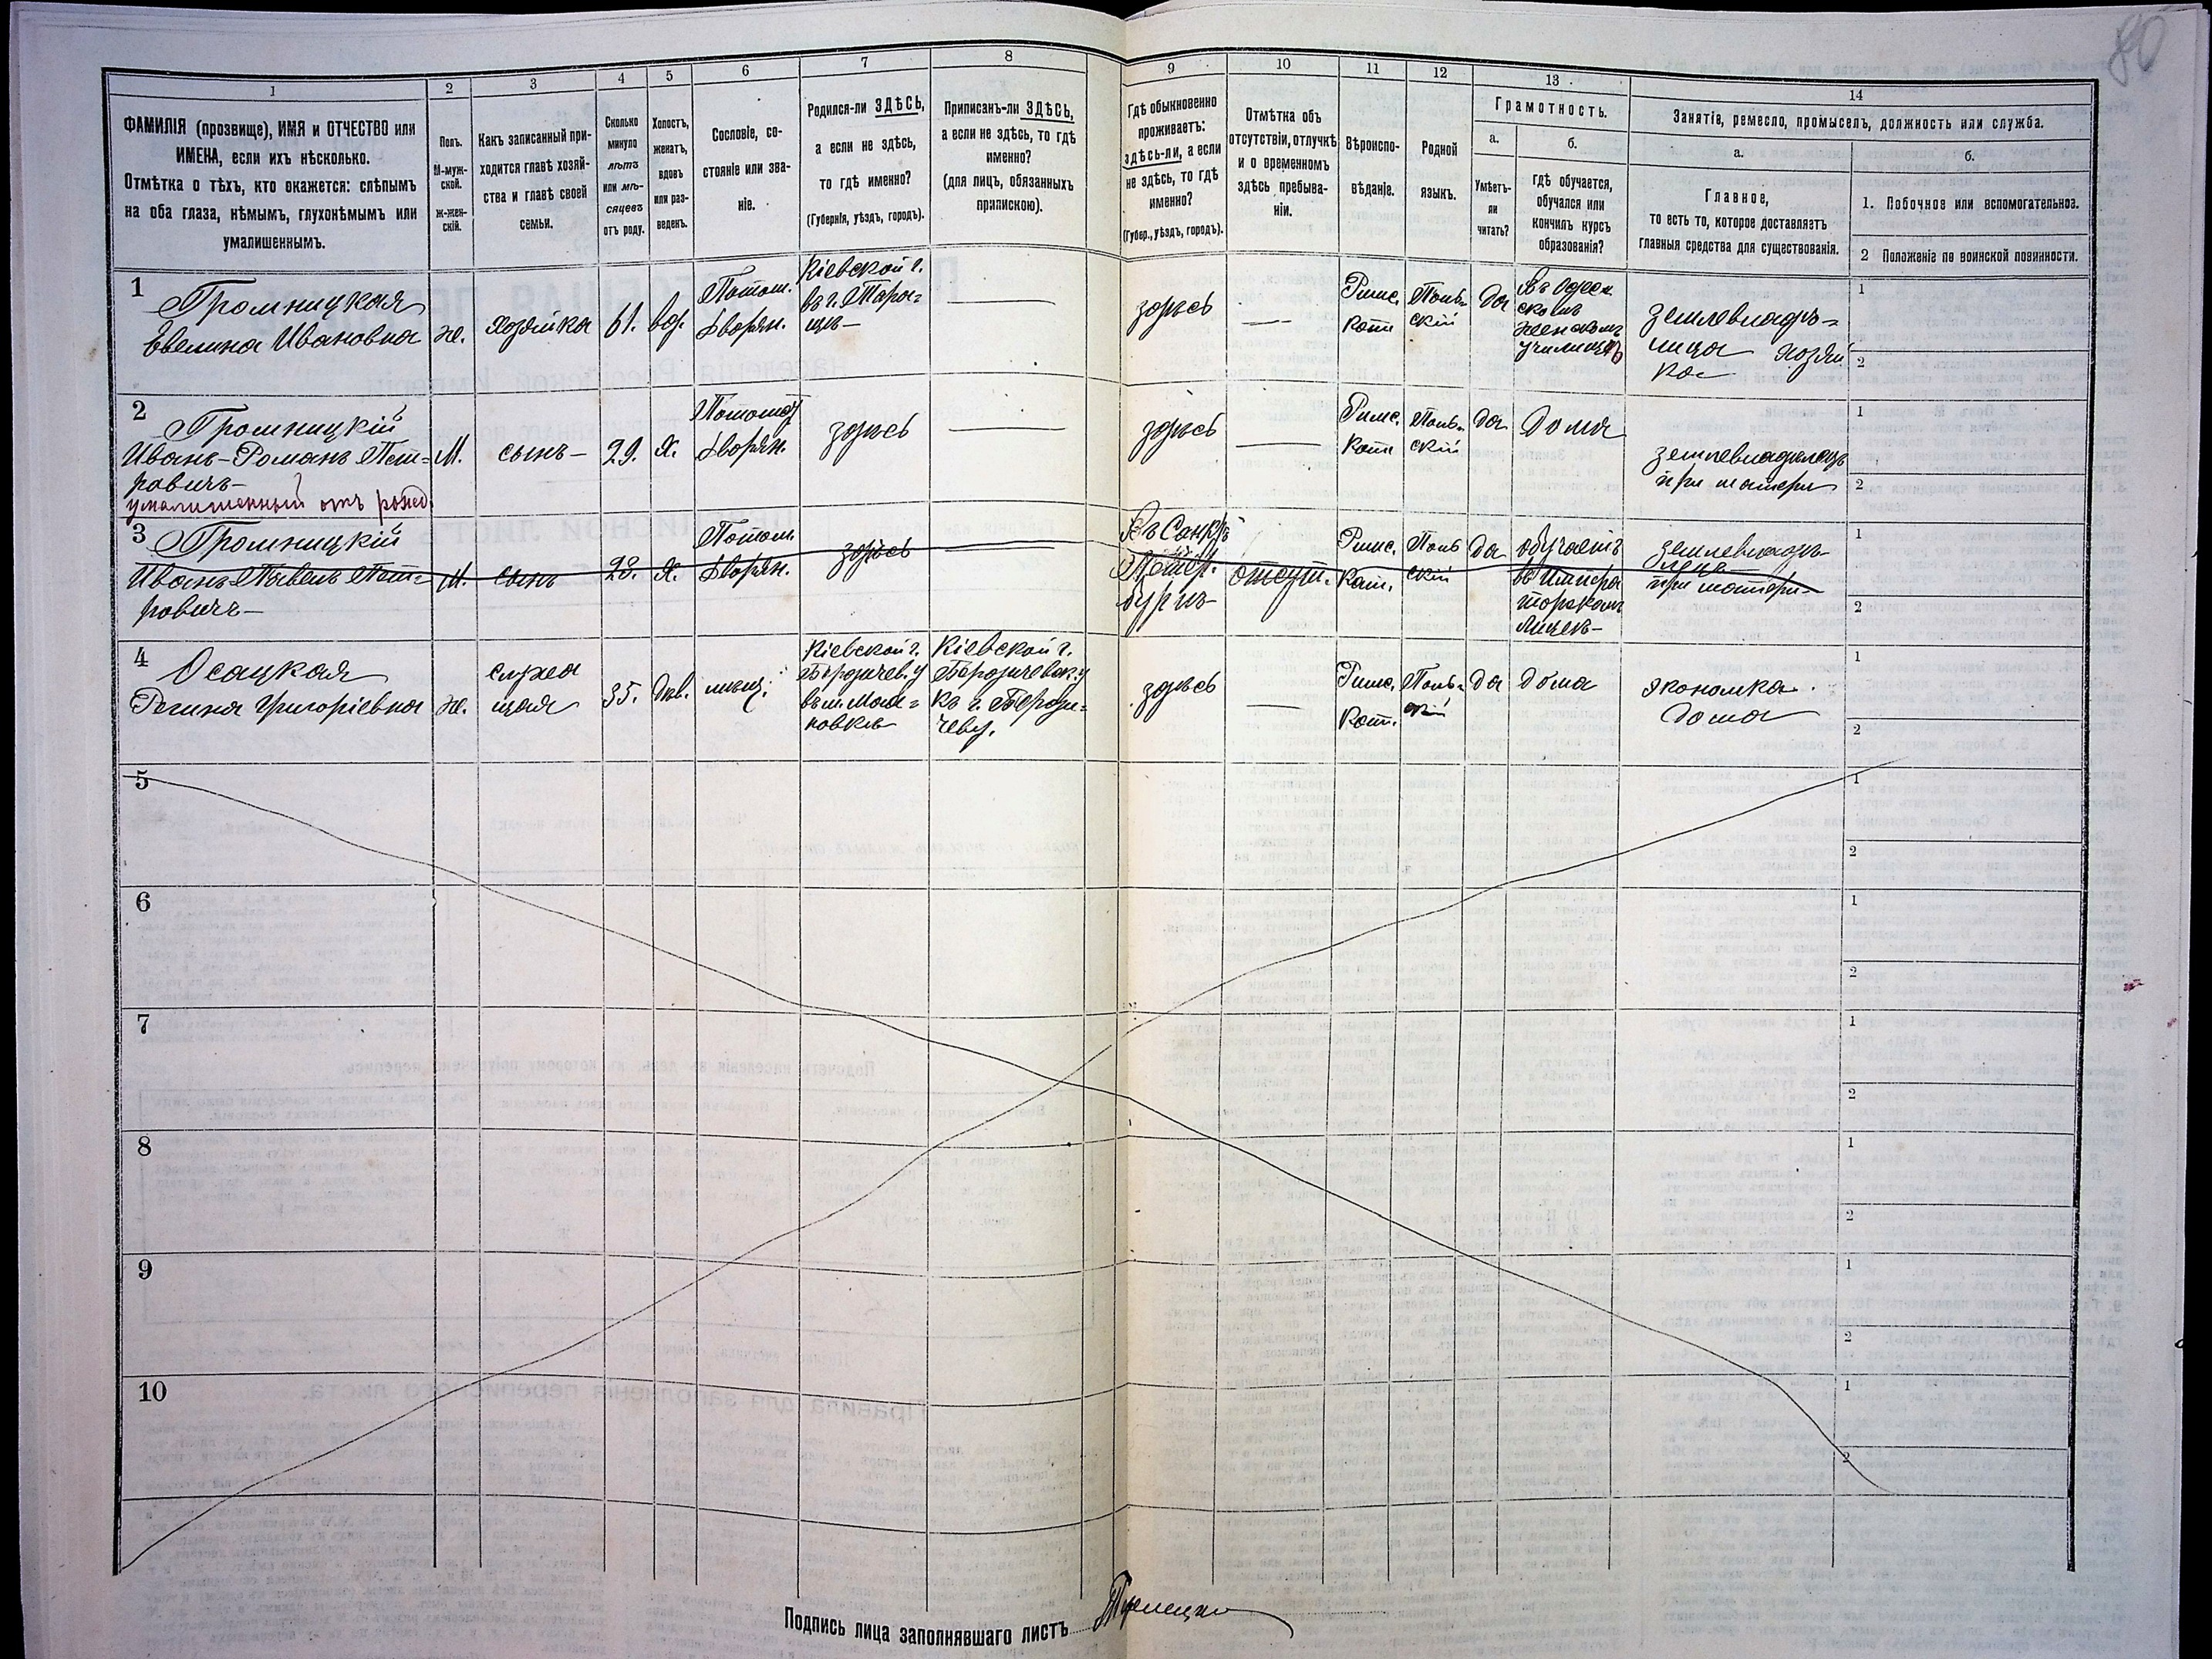 80
1
2
3
4
5
6
7
8
9
10
11
12
13
14
ФАМИЛІЯ (прозвище), ИМЯ и ОТЧЕСТВО или
ИМЕНА, если ихъ нѣсколько.
Отмѣтка о тѣхъ, кто окажется: слѣпымъ
на оба глаза, нѣмымъ, глухонѣмымъ или
умалишеннымъ.
Полъ.
М-муж-
ской.
ж-жен-
скій.
Какъ записанный при-
ходится главѣ хозяй-
ства и главѣ своей
семьи.
Сколько
минуло
лѣтъ
или мѣ-
сяцевъ
отъ роду.
Холостъ,
женатъ,
вдовъ
или раз-
веденъ.
Сословіе, со-
стояніе или зва-
ніе.
Родился-ли ЗДѢСЬ,
а если не здѣсь,
то гдѣ именно?
(Губернія, уѣздъ, городъ).
Приписанъ-ли ЗДѢСЬ,
а если не здѣсь, то гдѣ
именно?
(для лицъ, обязанныхъ
припискою).
Гдѣ обыкновенно
проживаетъ:
здѣсь-ли, а если
не здѣсь, то гдѣ
именно?
(Губер., уѣздъ, городъ).
Отмѣтка объ
отсутствіи, отлучкѣ
и о временномъ
здѣсь пребыва-
ніи.
Вѣроиспо-
вѣданіе.
Родной
языкъ.
Грамотность.
а.
Умѣетъ-
ли
читать?
б.
гдѣ обучается,
обучался или
кончилъ курсъ
образованія?
Занятіе, ремесло, промыселъ, должность или служба.
а.
Главное,
то есть то, которое доставляетъ
главныя средства для существованія.
б.
1. Побочное или вспомогательное.
2 Положеніе по воинской повинности.
1
Громницкая
Евелина Ивановна
ж.
хозяйка
61.
вд.
Потом.
дворян.
Кіевской г.
въ г. Тара=
щѣ—
здѣсь
Римс.
кат
Поль-
скій
да
въ Одес
скомъ
женскомъ
училищѣ
землевладѣ=
лица хозяй
ка
1
2
2
Громницкій
Иванъ-Романъ Пет=
ровичъ—
умалишенный отъ рожд.
М.
сынъ—
29.
х.
Потом.
дворян.
здѣсь
здѣсь
Римс.
кат
Поль-
скій
да
дома
землевладѣлецъ
при матери
1
2
3
Громницкій
Иванъ Павелъ Пет=
ровичъ—
М.
сынъ
28.
х.
Потом
дворян.
здѣсь
Въ Санктъ
Петер.
бургѣ
отсут.
Римс.
кат.
Поль
скій
да
обучается
въ Импера
торском
Лицеѣ—
землевладѣ-
лецъ
при матери—
1
2
4
Осацкая
Регина Григоріевна
ж.
служа
щая
35.
дѣв.
мѣщ.
Кіевской г.
Бердичев. у
въ м. Мах=
новкѣ
Кіевской г.
Бердичевск. у
къ г. Берди=
чеву.
здѣсь
Римс.
кат.
Поль-
скій
да
дома
экономка.
дома
1
2
5
1
2
6
1
2
7
1
2
8
1
2
9
1
2
10
1
2
Подпись лица заполнявшаго листъ